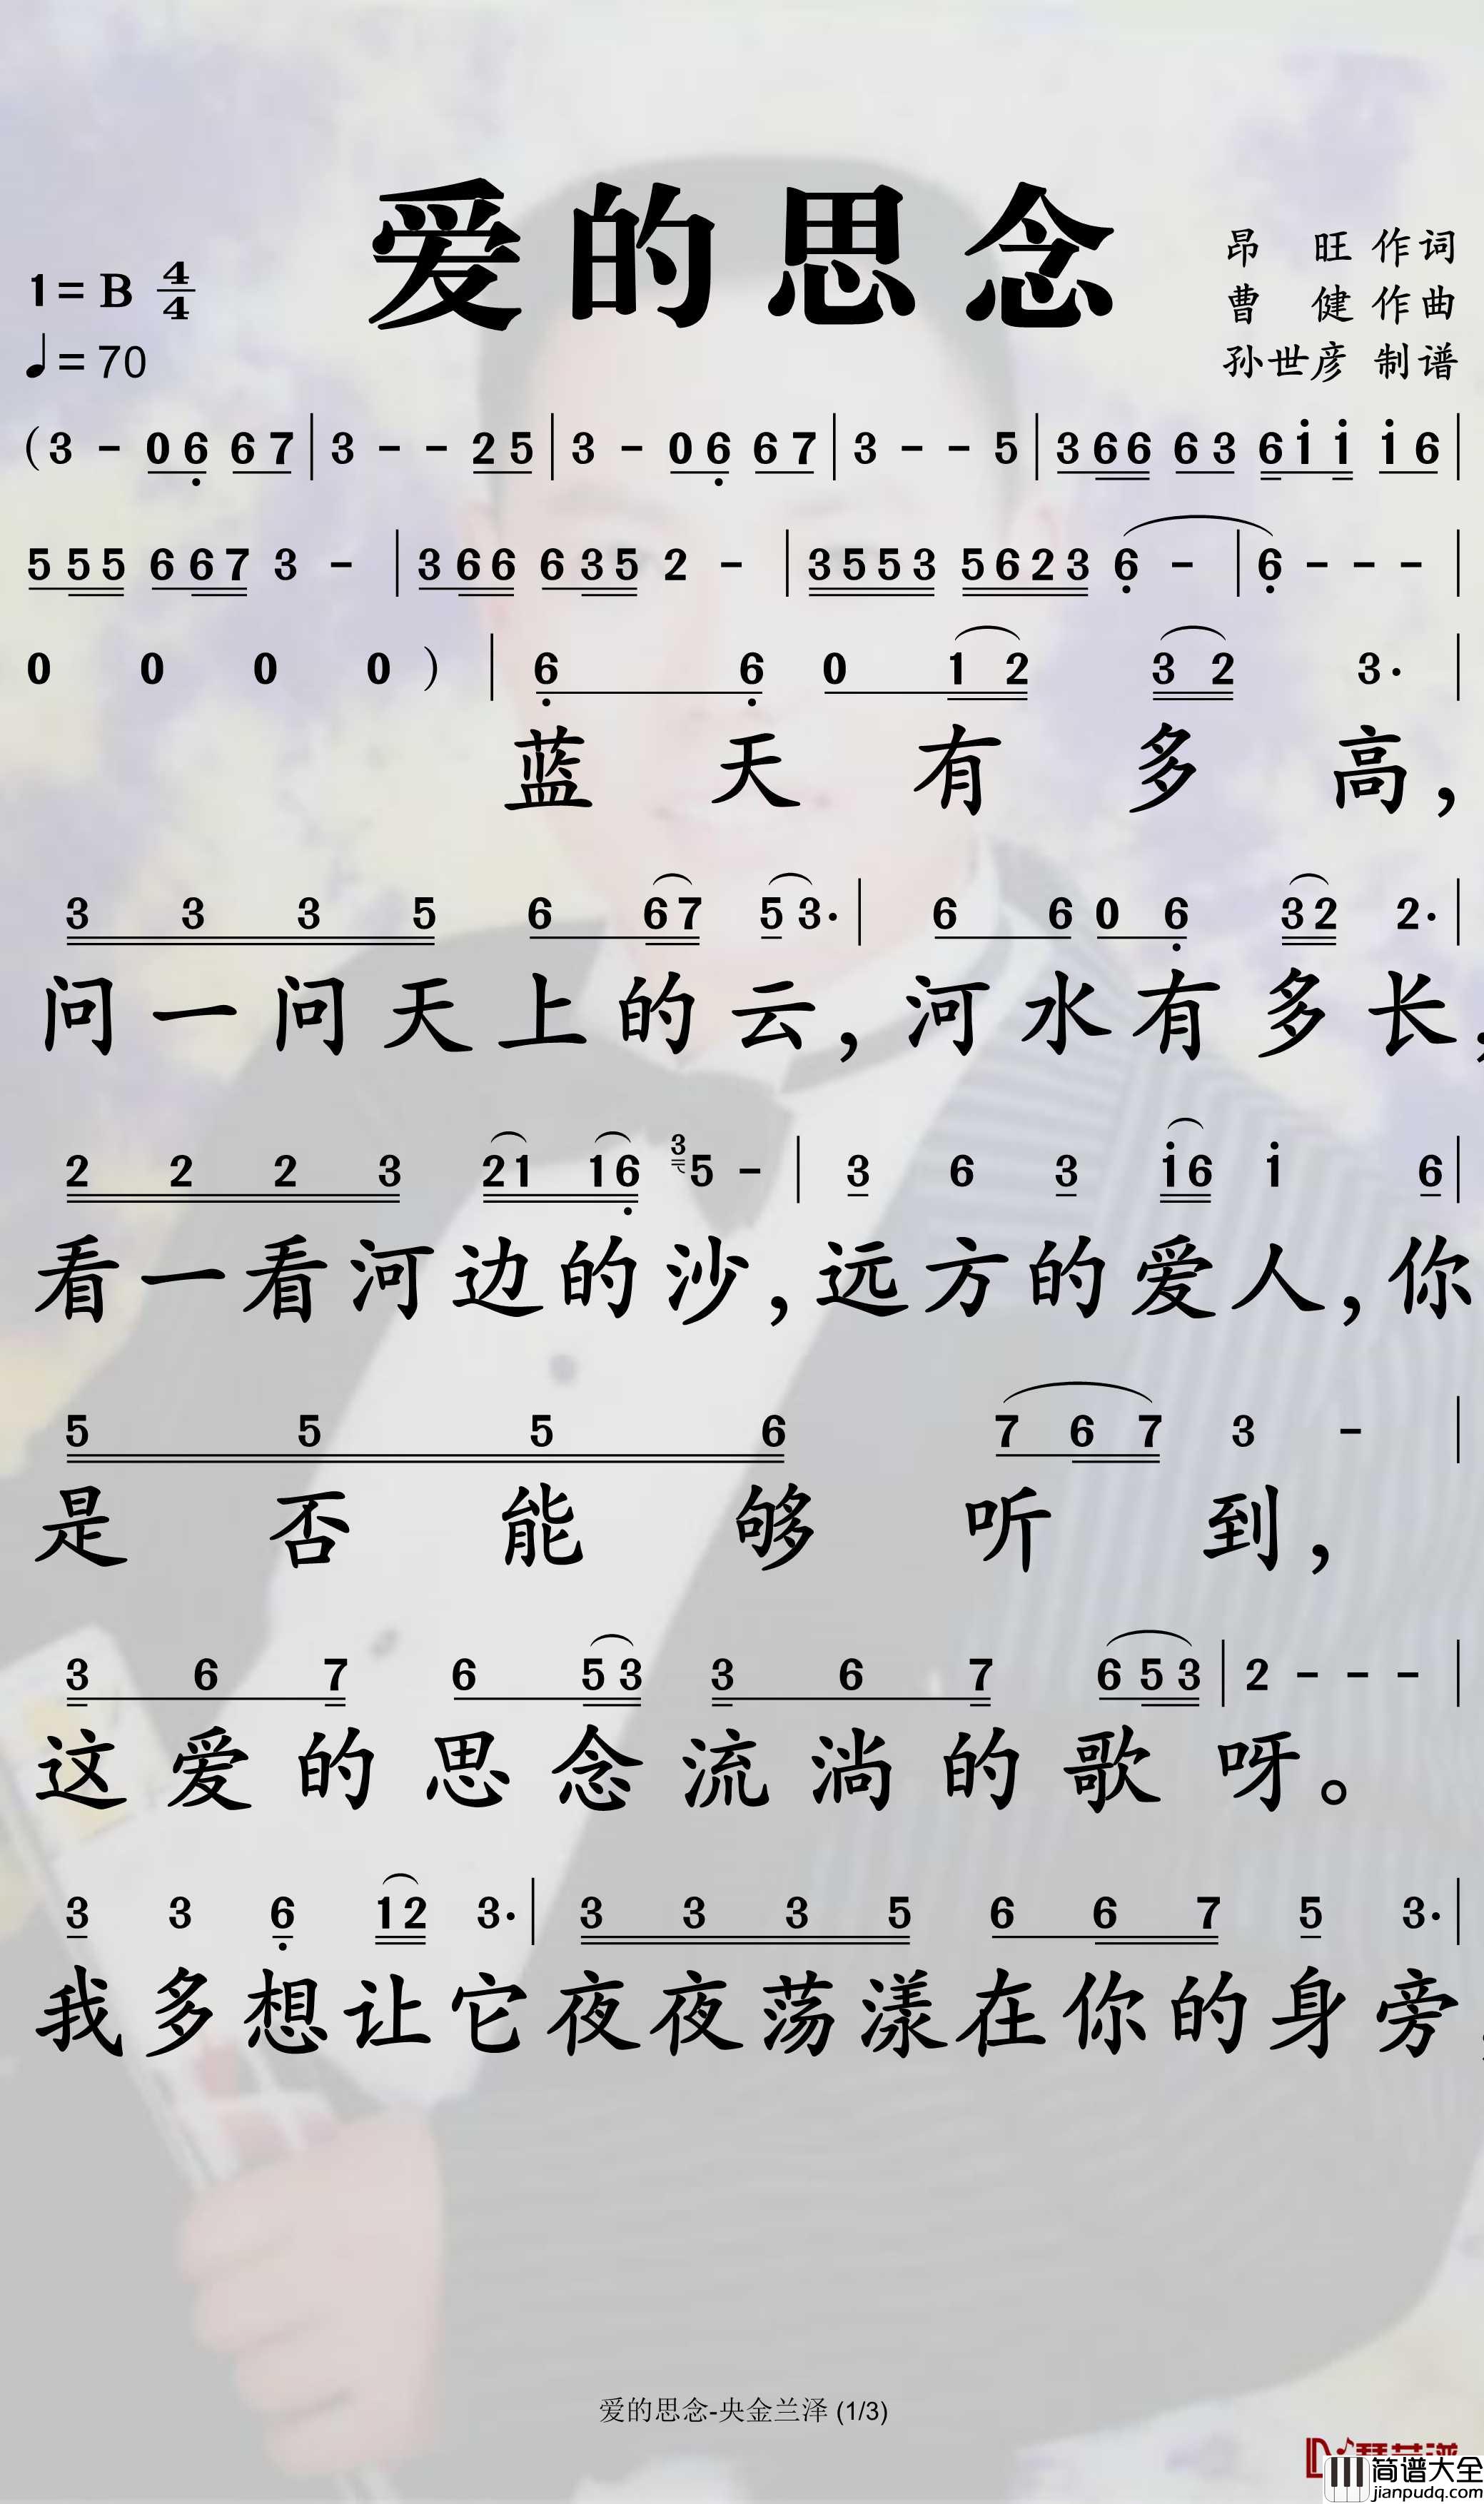 爱的思念
1= B 4/4
♩= 70
昂 旺 作词
曹 健 作曲
孙世彦 制谱
(3 - 0 6 6 7 | 3 - - 2 5 | 3 - 0 6 6 7 | 3 - - 5 | 3 6 6 6 3 6 i i i 6 |
5 5 5 6 6 7 3 - | 3 6 6 6 3 5 2 - | 3 5 5 3 5 6 2 3 6 - | 6 - - - |
0 0 0 0 ) | 6 6 0 1 2 3 2 3. |
蓝天有多高，
3 3 3 5 6 6 7 5 3. | 6 6 0 6 3 2 2. |
问一问天上的云，河水有多长，
2 2 2 3 2 1 1 6 3 5 - | 3 6 3 i 6 i 6 |
看一看河边的沙，远方的爱人，你
5 5 5 6 7 6 7 3 - |
是否能够听到，
3 6 7 6 5 3 3 6 7 6 5 3 | 2 - - - |
这爱的思念流淌的歌呀。
3 3 6 1 2 3. | 3 3 3 5 6 6 7 5 3. |
我多想让它夜夜荡漾在你的身旁，
爱的思念-央金兰泽 (1/3)
简谱大全
jianpudq.com